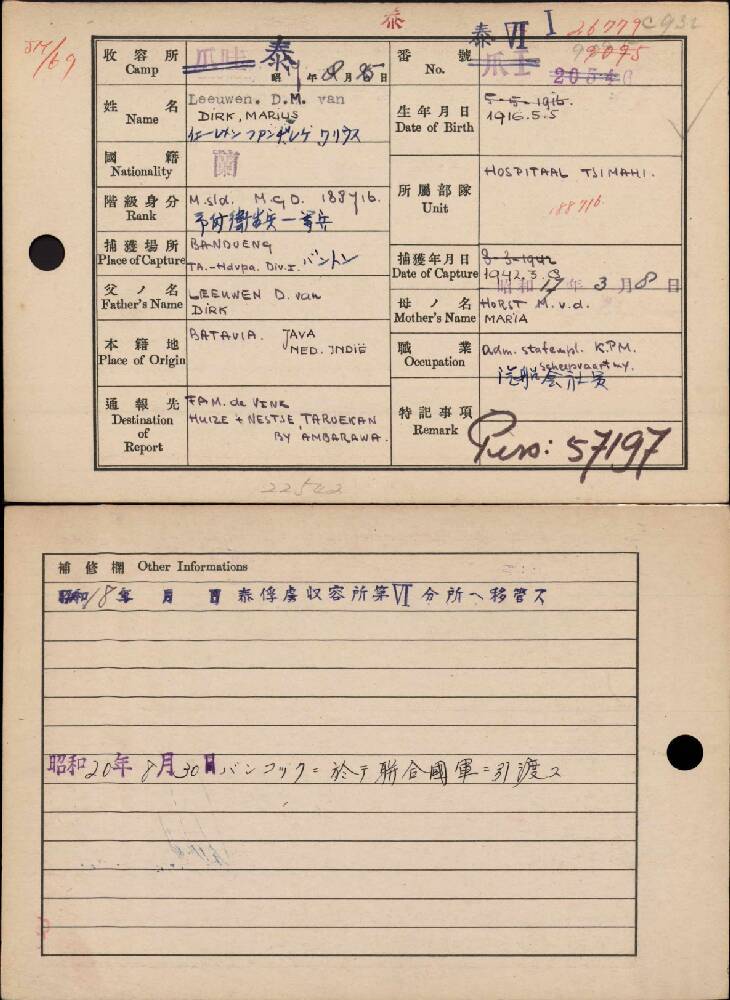 泰
泰 VI I
26779
C932
JM/69
收容所 Camp
爪哇 泰
昭 年 8月 15日
番號 No.
爪 I
2054
姓名 Name
Leeuwen. D.M. van
DIRK, MARIUS
生年月日 Date of Birth
5-5-1916.
1916.5.5
國籍 Nationality
蘭
階級身分 Rank
M.sld. M.G.D. 188716.
衛生兵一等兵
所屬部隊 Unit
HOSPITAAL TSIMAHI.
188716.
捕獲場所 Place of Capture
BANDOENG
TA.-Hdvpa. Div.I. バンドン
捕獲年月日 Date of Capture
8-3-1942
1942.3.8
昭和17年3月8日
父ノ名 Father's Name
LEEUWEN D. van
DIRK
母ノ名 Mother's Name
HORST M.v.d.
MARIA
本籍地 Place of Origin
BATAVIA. JAVA
NED. INDIË
職業 Occupation
adm. statempl. K.P.M.
scheepvaartmy.
汽船会社員
通報先 Destination of Report
FAM. de VINK
HUIZE 't NESTJE, TAROEKAN
BY AMBARAWA.
特記事項 Remark
Pers: 57197
22542
補修欄 Other Informations
昭和18年 月 日 泰俘虜収容所第VI分所ヘ移管ス
昭和20年8月30日バンコックニ於テ聯合國軍ニ引渡ス